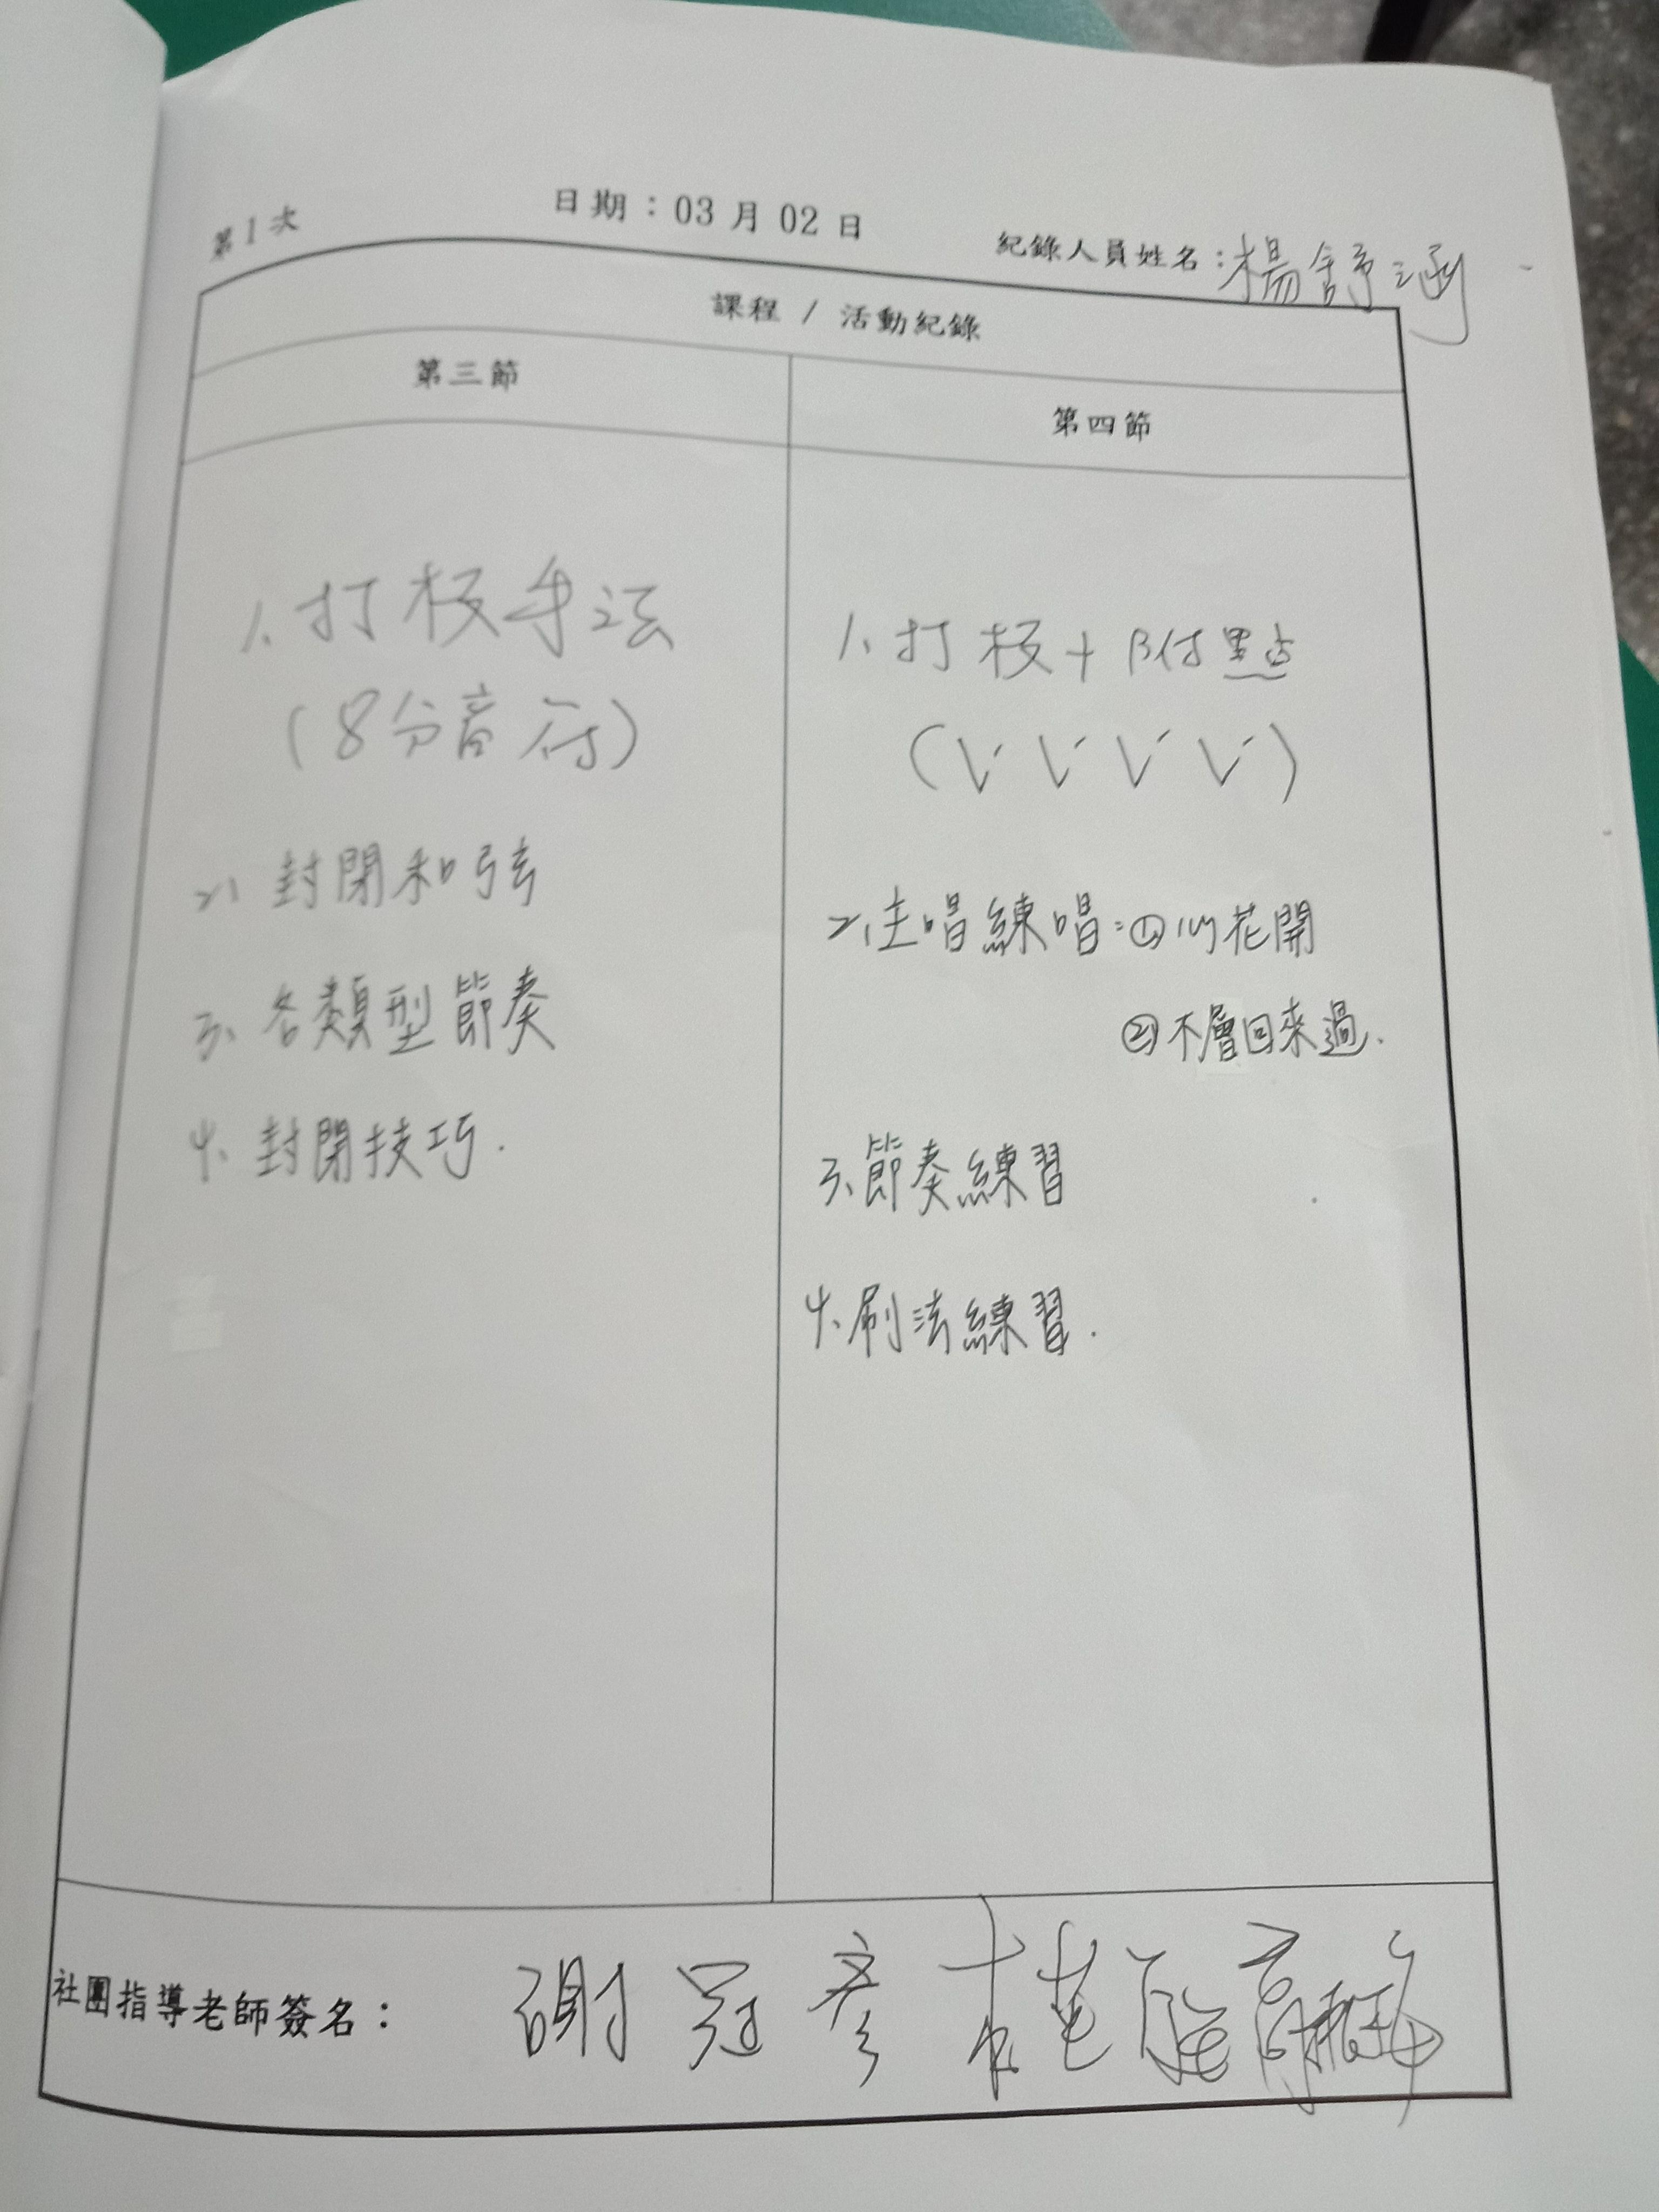 第1次
日期：03月02日
紀錄人員姓名：楊舒涵
課程 / 活動紀錄
第三節
1. 打板手法
(8分音符)
2. 封閉和弦
3、各類型節奏
4、封閉技巧.
第四節
1、打板+附點
(V· V· V· V·)
2、主唱練唱：①心花開
②不曾回來過.
3、節奏練習
4、刷法練習.
社團指導老師簽名：
謝冠彥